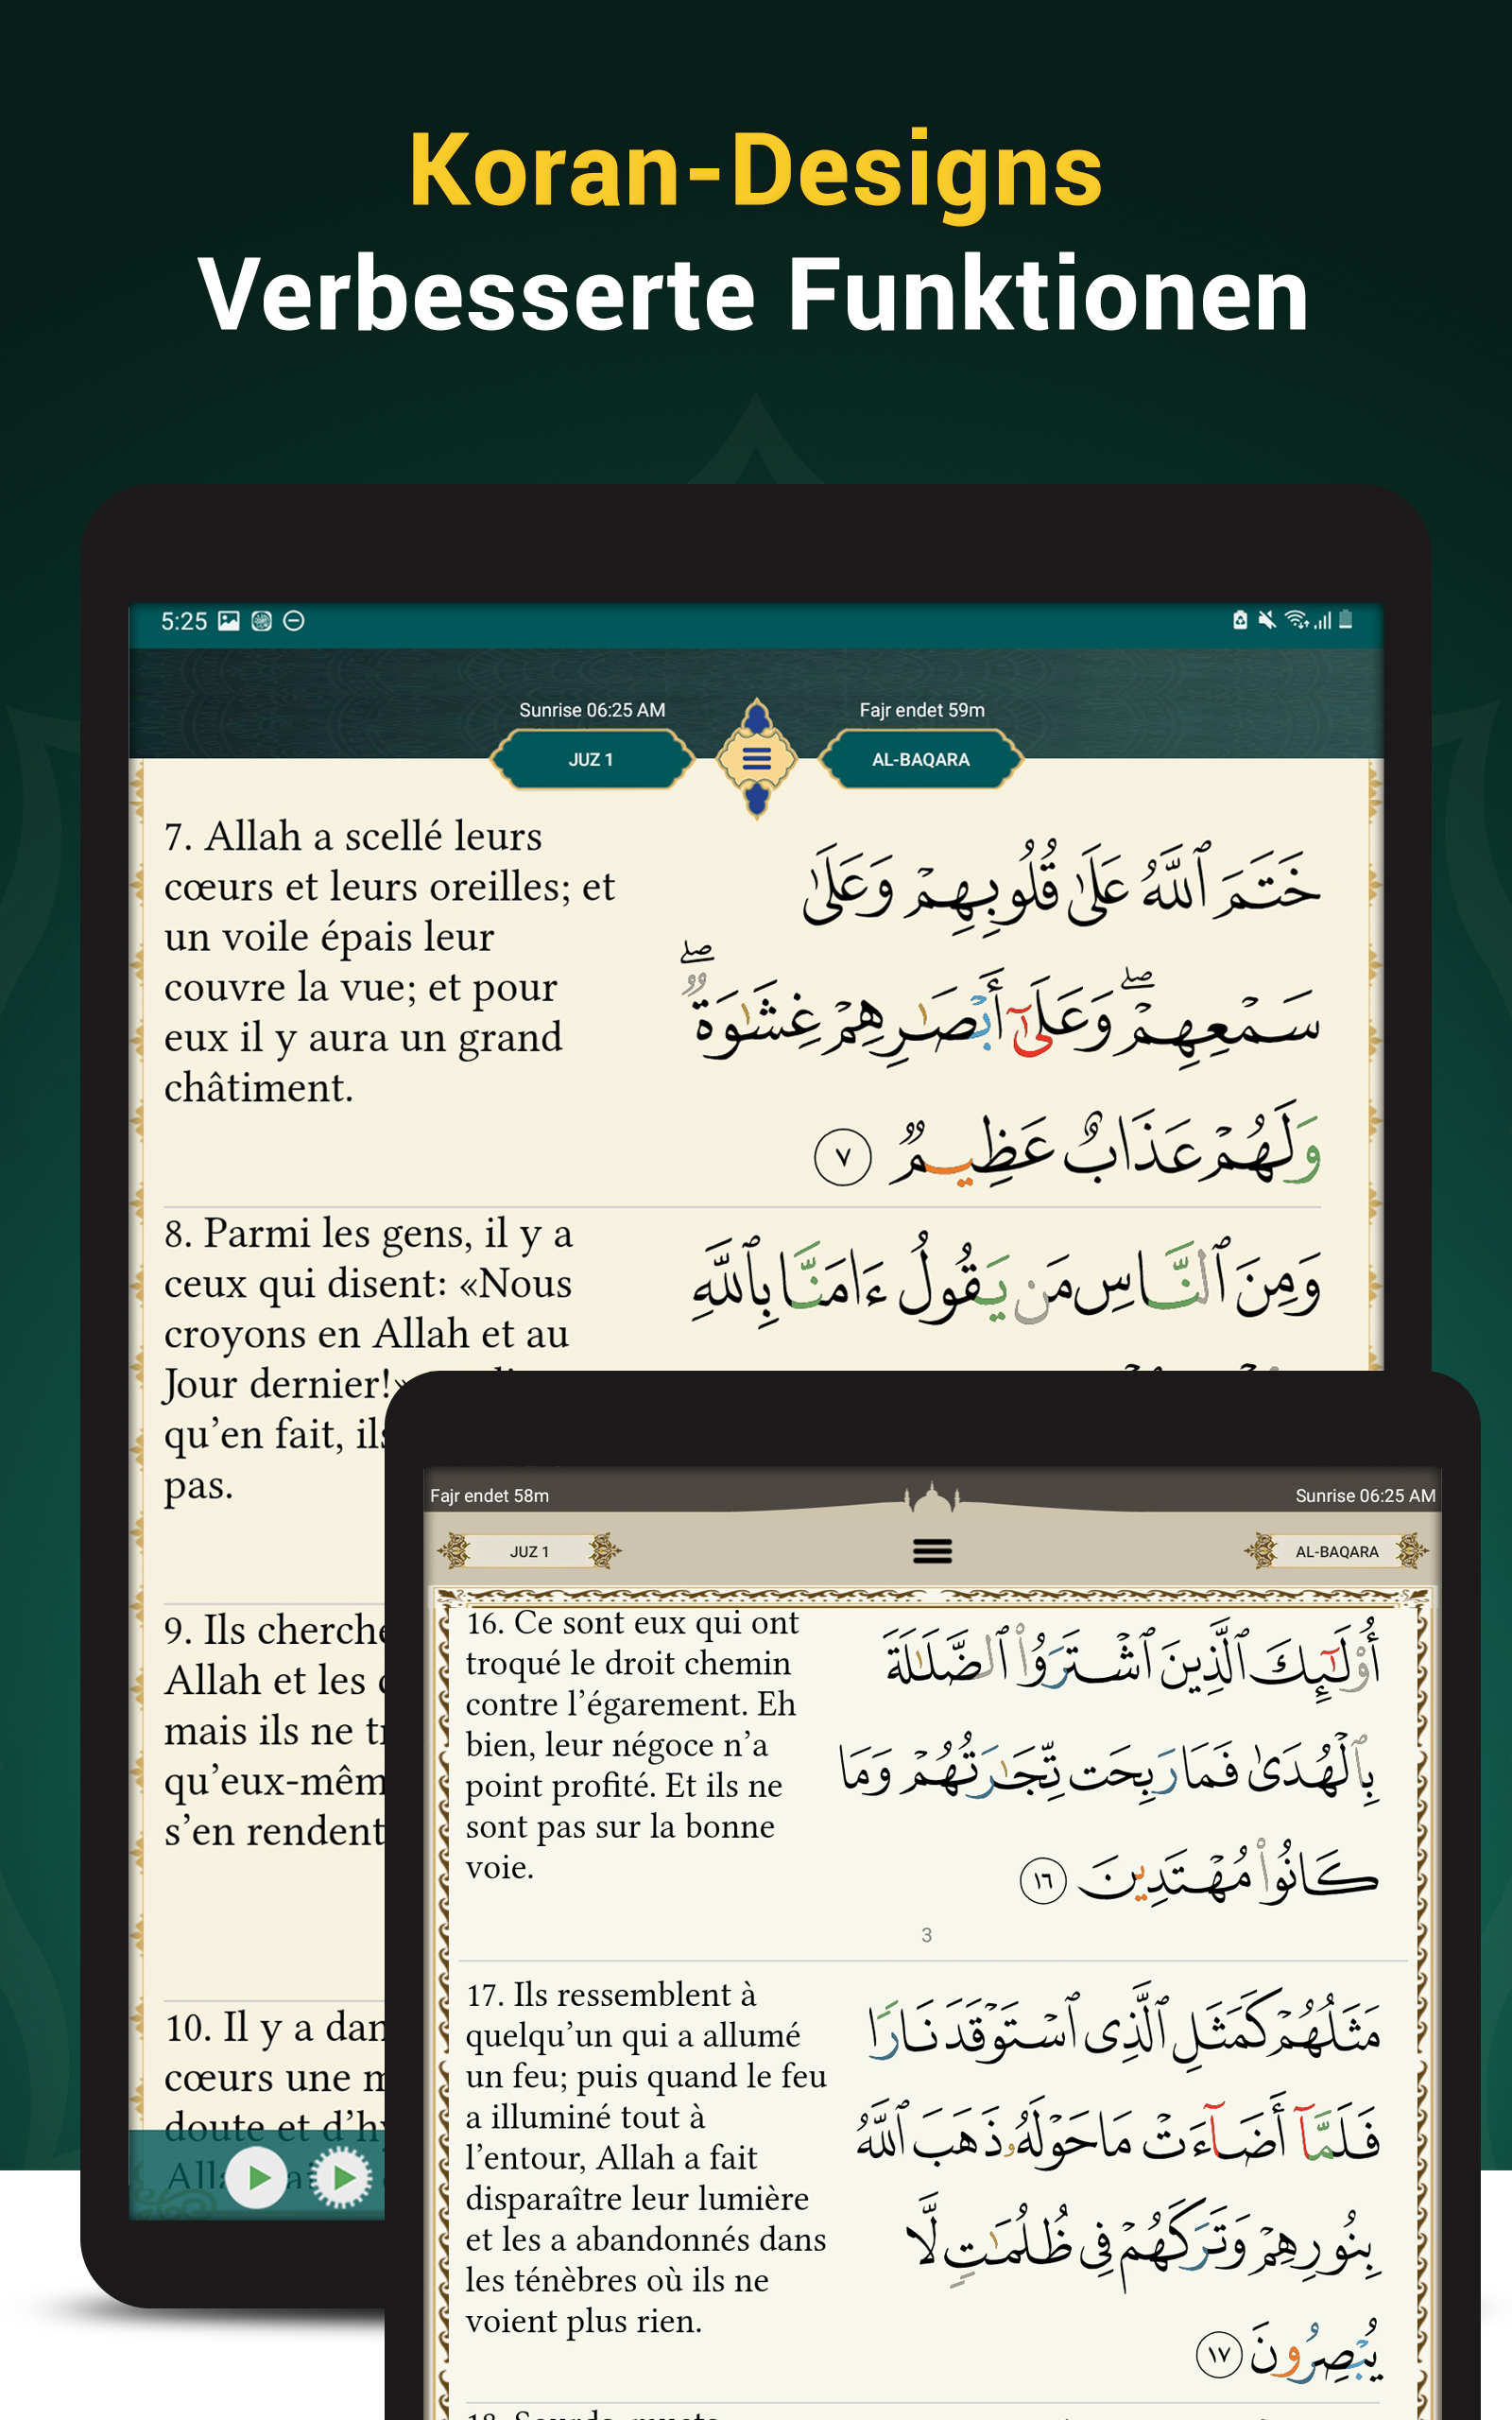 Koran-Designs
Verbesserte Funktionen
5:25
Sunrise 06:25 AM
Fajr endet 59m
JUZ 1
AL-BAQARA
7. Allah a scellé leurs
cœurs et leurs oreilles; et
un voile épais leur
couvre la vue; et pour
eux il y aura un grand
châtiment.
خَتَمَ ٱللَّهُ عَلَىٰ قُلُوبِهِمْ وَعَلَىٰ
سَمْعِهِمْ ۖ وَعَلَىٰٓ أَبْصَـٰرِهِمْ غِشَـٰوَةٌ ۖ
وَلَهُمْ عَذَابٌ عَظِيمٌ ٧
8. Parmi les gens, il y a
ceux qui disent: «Nous
croyons en Allah et au
Jour dernier!»
qu’en fait, ils
pas.
وَمِنَ ٱلنَّاسِ مَن يَقُولُ ءَامَنَّا بِٱللَّهِ
9. Ils cherche
Allah et les
mais ils ne
qu’eux-mêm
s’en rendent
10. Il y a dan
cœurs une m
doute et d’hy
Fajr endet 58m
Sunrise 06:25 AM
JUZ 1
AL-BAQARA
16. Ce sont eux qui ont
troqué le droit chemin
contre l’égarement. Eh
bien, leur négoce n’a
point profité. Et ils ne
sont pas sur la bonne
voie.
أُوْلَـٰٓئِكَ ٱلَّذِينَ ٱشْتَرَوُاْ ٱلضَّلَـٰلَةَ
بِٱلْهُدَىٰ فَمَا رَبِحَت تِّجَـٰرَتُهُمْ وَمَا
كَانُواْ مُهْتَدِينَ ١٦
3
17. Ils ressemblent à
quelqu’un qui a allumé
un feu; puis quand le feu
a illuminé tout à
l’entour, Allah a fait
disparaître leur lumière
et les a abandonnés dans
les ténèbres où ils ne
voient plus rien.
مَثَلُهُمْ كَمَثَلِ ٱلَّذِى ٱسْتَوْقَدَ نَارًا
فَلَمَّآ أَضَآءَتْ مَا حَوْلَهُۥ ذَهَبَ ٱللَّهُ
بِنُورِهِمْ وَتَرَكَهُمْ فِى ظُلُمَـٰتٍ لَّا
يُبْصِرُونَ ١٧